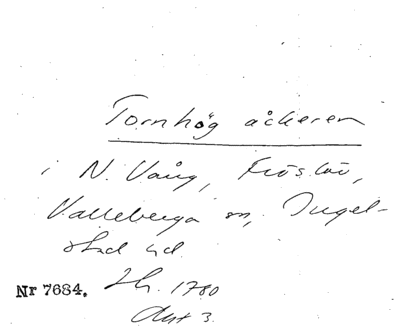 Tornhög åkeren
i N. Vång, Fröslöv,
Valleberga sn, Ingel-
stad hd.
Nr 7684. Lh. 1780
Akt 3.